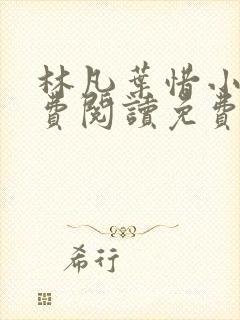 林凡葉惜小
費閱讀免費
希行